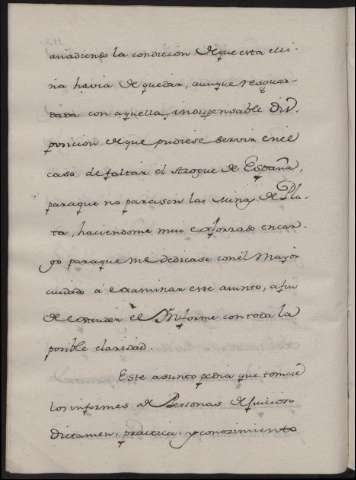 añadiendo la condicion de que esta Mi-
na havia de quedar, aunque resguar-
dada con aquella indispensable dis-
posicion de que pudiese servir en el
caso de faltar el Azogue de España,
paraque no pareciesen las Minas de Pla-
ta, haciendome mui esforzado encar-
go paraque me dedicase con el Mayor
cuidado á examinar este asunto, a fin
de estender el Informe con toda la
posible claridad.
Este asunto pedia que tomase
los informes de Personas de juicioso
dictamen, practica, y conocimiento